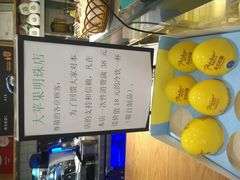 大苹果明珠店
尊敬的各位顾客：
为了回馈大家对本
店的支持和信赖，凡在
本店一次性消费满 38 元
送价值 18 元的冷饮一杯